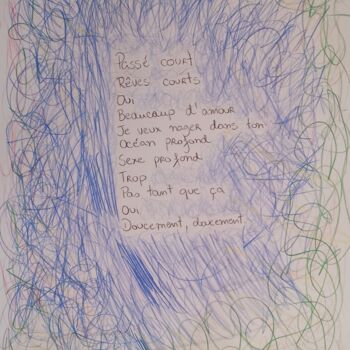 Passé court
Rêves courts
Oui
Beaucoup d'amour
Je veux nager dans ton
Océan profond
Sexe profond
Trop
Pas tant que ça
Oui
Doucement, doucement